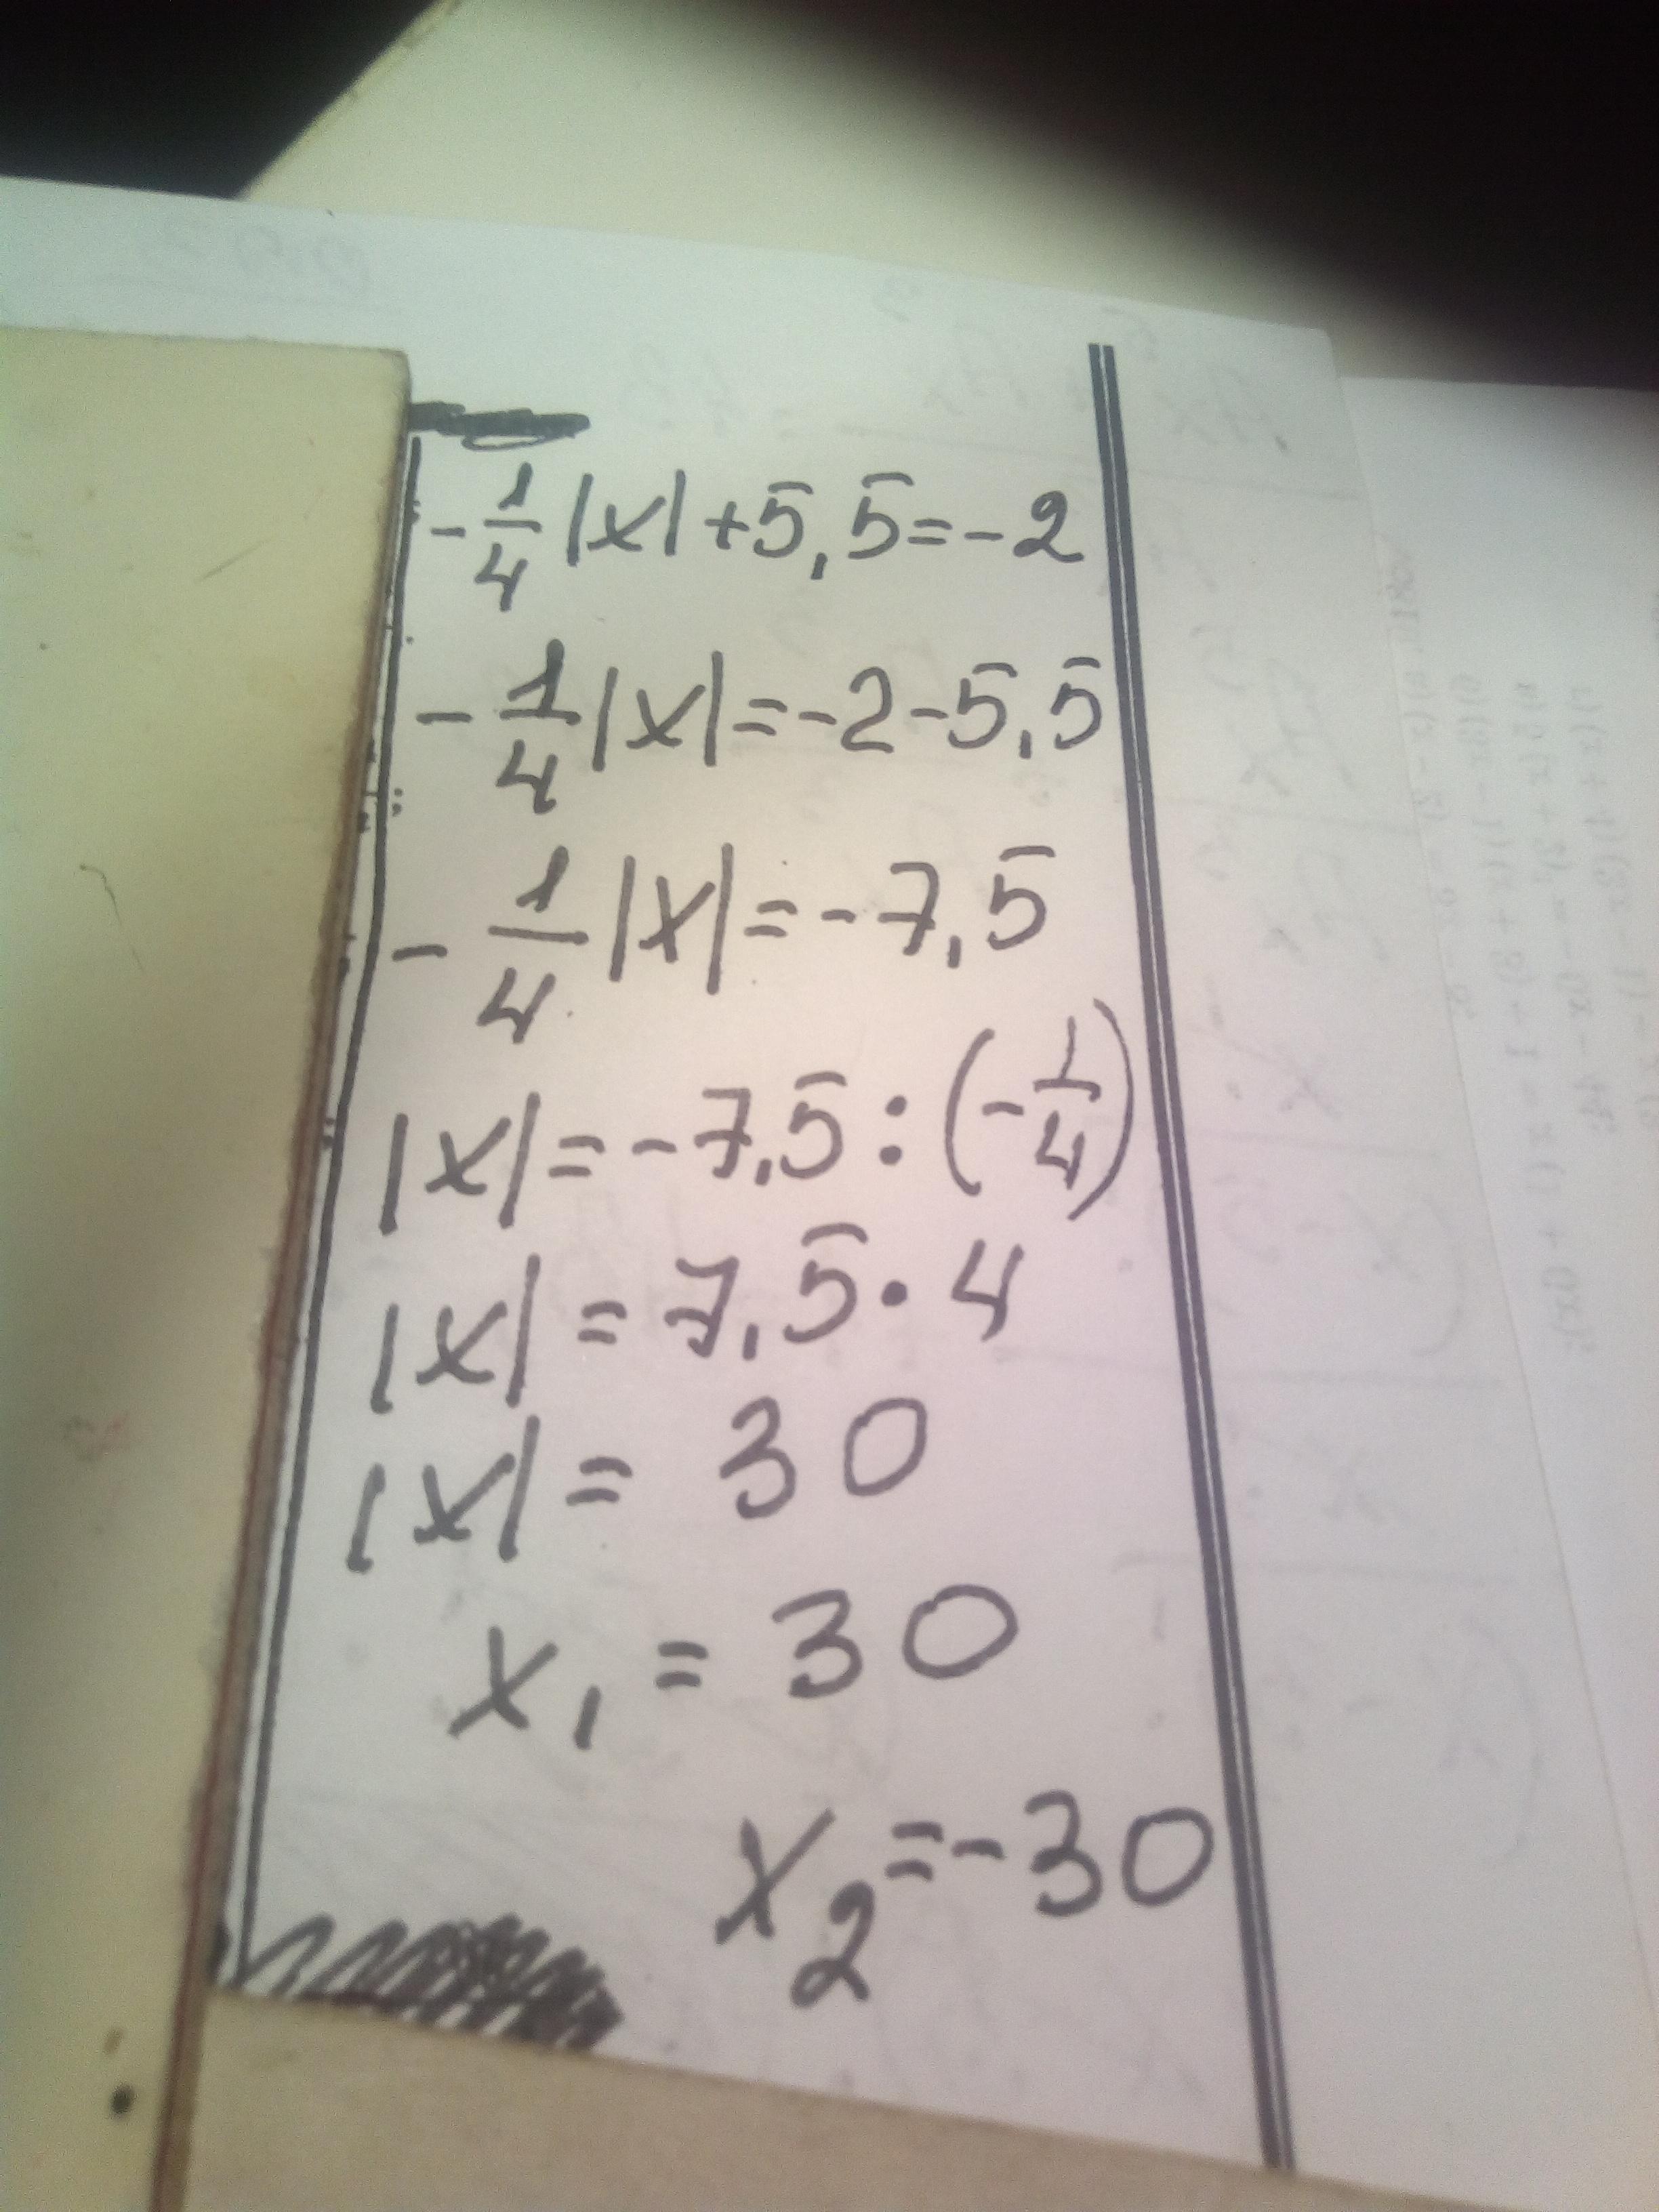 -1/4|x|+5,5=-2
-1/4|x|=-2-5,5
-1/4|x|=-7,5
|x|=-7,5:(-1/4)
|x|=7,5·4
|x|=30
x₁=30
x₂=-30